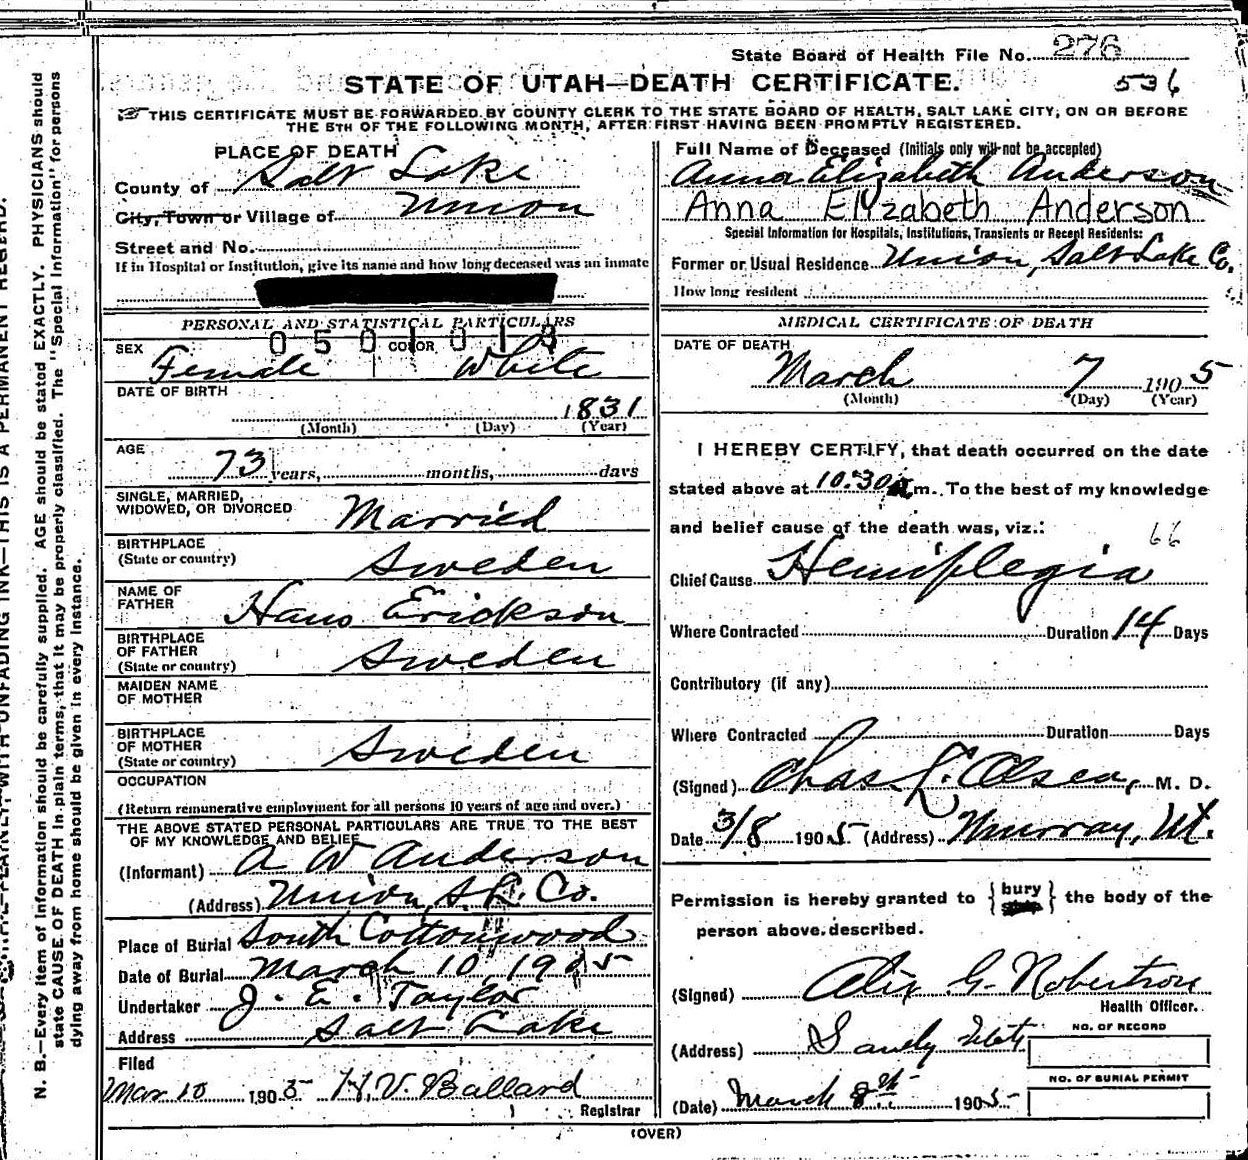 State Board of Health File No. 276
STATE OF UTAH—DEATH CERTIFICATE.
536
☞ THIS CERTIFICATE MUST BE FORWARDED BY COUNTY CLERK TO THE STATE BOARD OF HEALTH, SALT LAKE CITY, ON OR BEFORE
THE 5TH OF THE FOLLOWING MONTH, AFTER FIRST HAVING BEEN PROMPTLY REGISTERED.
PLACE OF DEATH
County of Salt Lake
City, Town or Village of Union
Street and No.
If in Hospital or Institution, give its name and how long deceased was an inmate
PERSONAL AND STATISTICAL PARTICULARS
0501013
SEX Female COLOR White
DATE OF BIRTH
1831
(Month) (Day) (Year)
AGE
73 years, months, days
SINGLE, MARRIED,
WIDOWED, OR DIVORCED Married
BIRTHPLACE
(State or country) Sweden
NAME OF
FATHER Hans Erickson
BIRTHPLACE
OF FATHER
(State or country) Sweden
MAIDEN NAME
OF MOTHER
BIRTHPLACE
OF MOTHER
(State or country) Sweden
OCCUPATION
(Return remunerative employment for all persons 10 years of age and over.)
THE ABOVE STATED PERSONAL PARTICULARS ARE TRUE TO THE BEST
OF MY KNOWLEDGE AND BELIEF
(Informant) A W Anderson
(Address) Union, S. L. Co.
Place of Burial South Cottonwood
Date of Burial March 10, 1905
Undertaker J. E. Taylor
Address Salt Lake
Filed
Mar 10 1905 H. V. Ballard
Registrar
Full Name of Deceased (Initials only will not be accepted)
Anna Elizabeth Anderson
Anna Elizabeth Anderson
Special Information for Hospitals, Institutions, Transients or Recent Residents:
Former or Usual Residence Union, Salt Lake Co.
How long resident
MEDICAL CERTIFICATE OF DEATH
DATE OF DEATH
March 7 1905
(Month) (Day) (Year)
I HEREBY CERTIFY, that death occurred on the date
stated above at 10:30 m. To the best of my knowledge
and belief cause of the death was, viz.:
66
Chief Cause Hemiplegia
Where Contracted Duration 14 Days
Contributory (if any)
Where Contracted Duration Days
(Signed) Chas. L. Olsen, M. D.
Date 3/8 1905 (Address) Murray, Ut.
Permission is hereby granted to { bury } the body of the
person above described.
(Signed) Alix G. Robertson
Health Officer.
(Address) Sandy Utah
NO. OF RECORD
NO. OF BURIAL PERMIT
(Date) March 8th 1905
(OVER)
N. B.—Every item of information should be carefully supplied. AGE should be stated EXACTLY. PHYSICIANS should
state CAUSE OF DEATH in plain terms, that it may be properly classified. The "Special Information" for persons
dying away from home should be given in every instance.
WITH UNFADING INK—THIS IS A PERMANENT RECORD.